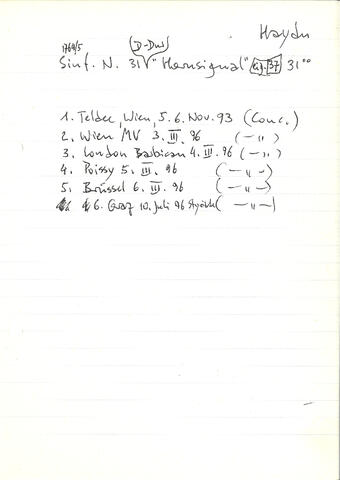 Haydn
1765 (D-Dur)
Sinf. N. 31 "Hornsignal" 37 31°°
1. Teldec, Wien, 5. 6. Nov. 93 (Conc.)
2. Wien MV 3. III. 96 (—〃—)
3. London Barbican 4. III. 96 (—〃—)
4. Poissy 5. III. 96 (—〃—)
5. Brüssel 6. III. 96 (—〃—)
6. Graz 10. Juli 96 Styriarte (—〃—)